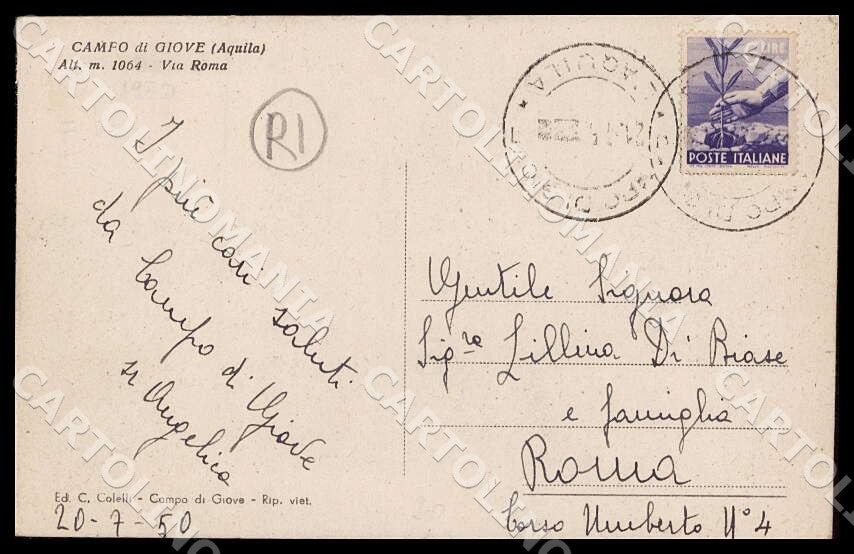 CAMPO di GIOVE (Aquila)
Alt. m. 1064 - Via Roma
R1
I più cari saluti
da Campo di Giove
sr Angelica
Ed. C. Colelli - Campo di Giove - Rip. viet.
20-7-50
LIRE
POSTE ITALIANE
CAMPO DI GIOVE
AQUILA
Gentile Signora
Sig.ra Lillina Di Biase
e famiglia
Roma
Corso Umberto N° 4
CARTOLINOMANIA